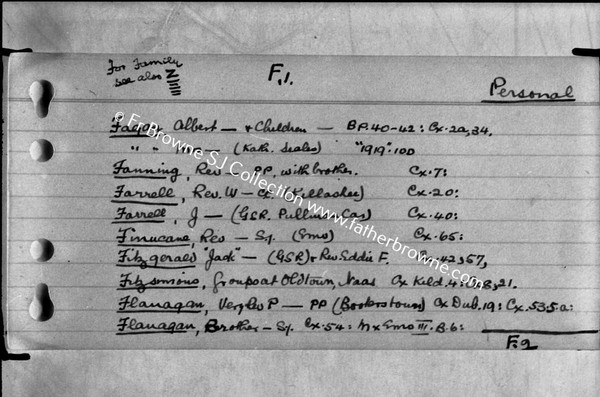 For Family
see also N
F.1.
Personal
Fagan, Albert — & Children — B.P. 40-42: Cx. 2a, 34.
" " " — (Kath. Scales) "1919". 10D
Fanning, Rev — P.P. with brother. Cx. 7:
Farrell, Rev. W — CC. (Killashee) Cx. 20:
Farrell, J — (GSR. Pullman Car) Cx. 40:
Finucane, Rev — S.J. (Emo) Cx. 65:
Fitzgerald "Jack" — (GSR) & Rev Eddie F. Cx. 42, 57,
Fitzsimons, Group at Oldtown, Naas Cx Kild. 21.
Flanagan, Very Rev P — PP (Booterstown) Cx Dub. 19: Cx. 53.5.a:
Flanagan, Brother — S.J. Cx. 54: Mx Emo III. B. 6:
F.2
© Fr Browne SJ Collection www.fatherbrowne.com